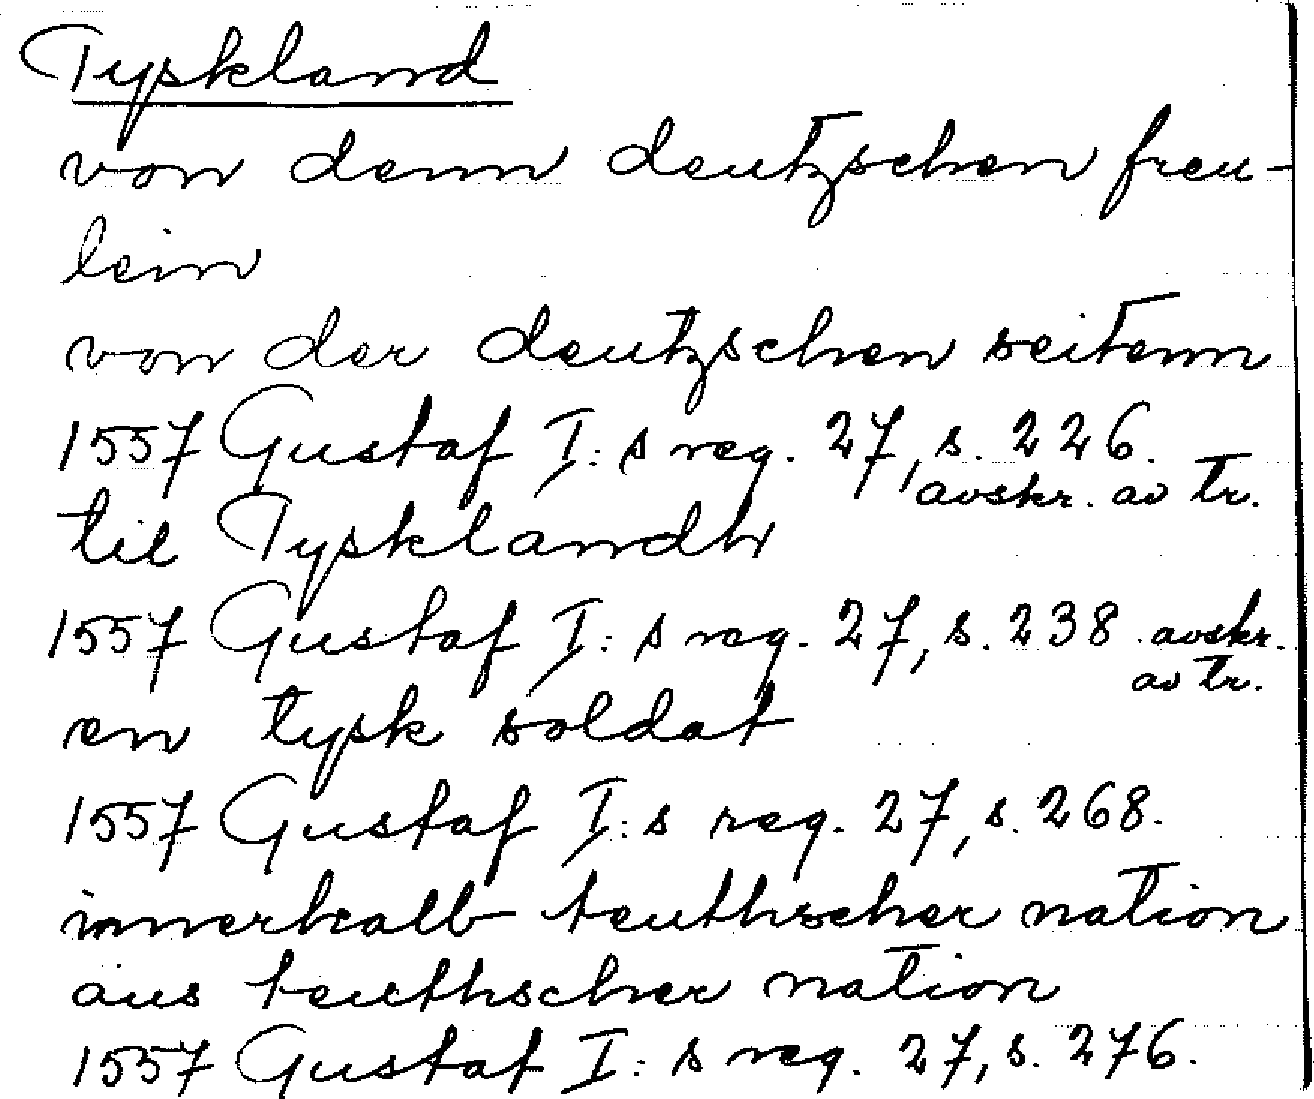 Tyskland
von denn deutzschen freu-
lein
von der deutzschen seitenn
1557 Gustaf I:s reg. 27, s. 226.
avskr. av tr.
til Tysklandh
1557 Gustaf I:s reg. 27, s. 238 avskr.
av tr.
en tysk soldat
1557 Gustaf I:s reg. 27, s. 268.
innerhalb teuthscher nation
aus teuthscher nation
1557 Gustaf I:s reg. 27, s. 276.